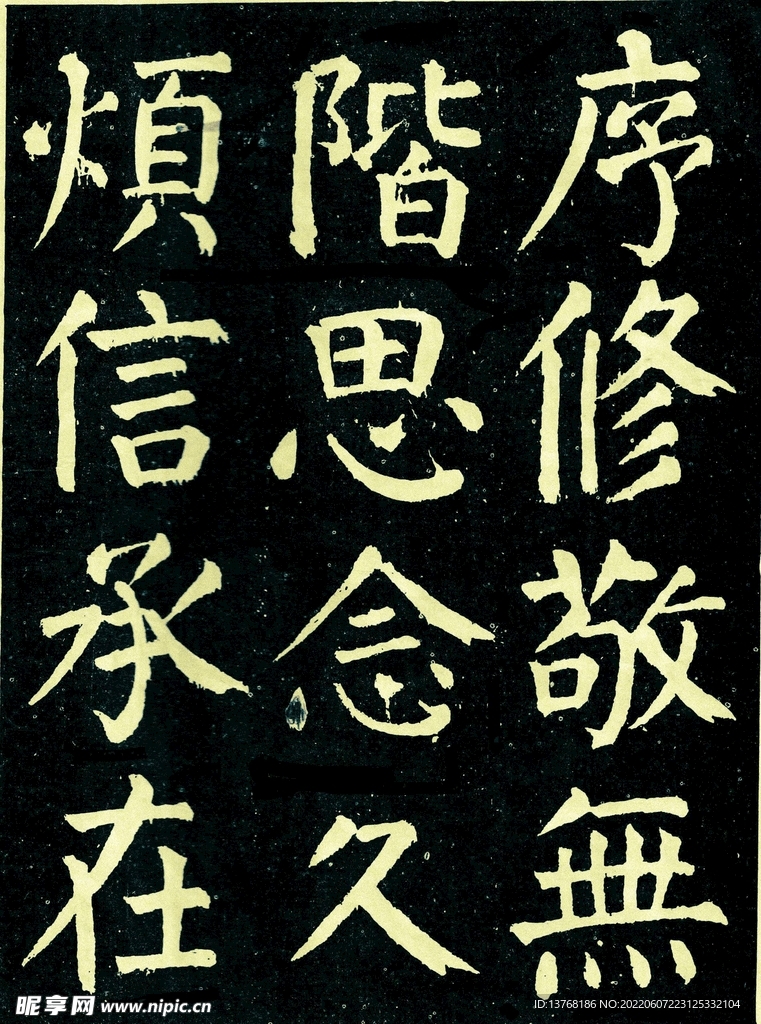 序修敬無
階思念久
煩信承在
昵享网 www.nipic.cn
ID:13768186 NO:20220607223125332104